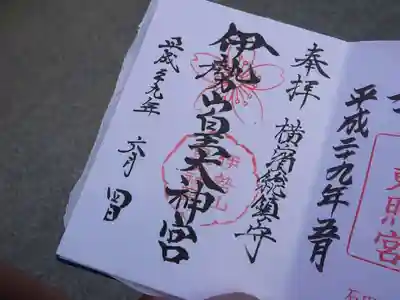 奉拝
横濱総鎮守
伊勢山皇大神宮
伊勢山
平成二十九年
六月
四日
平成二十九年五月
東照宮